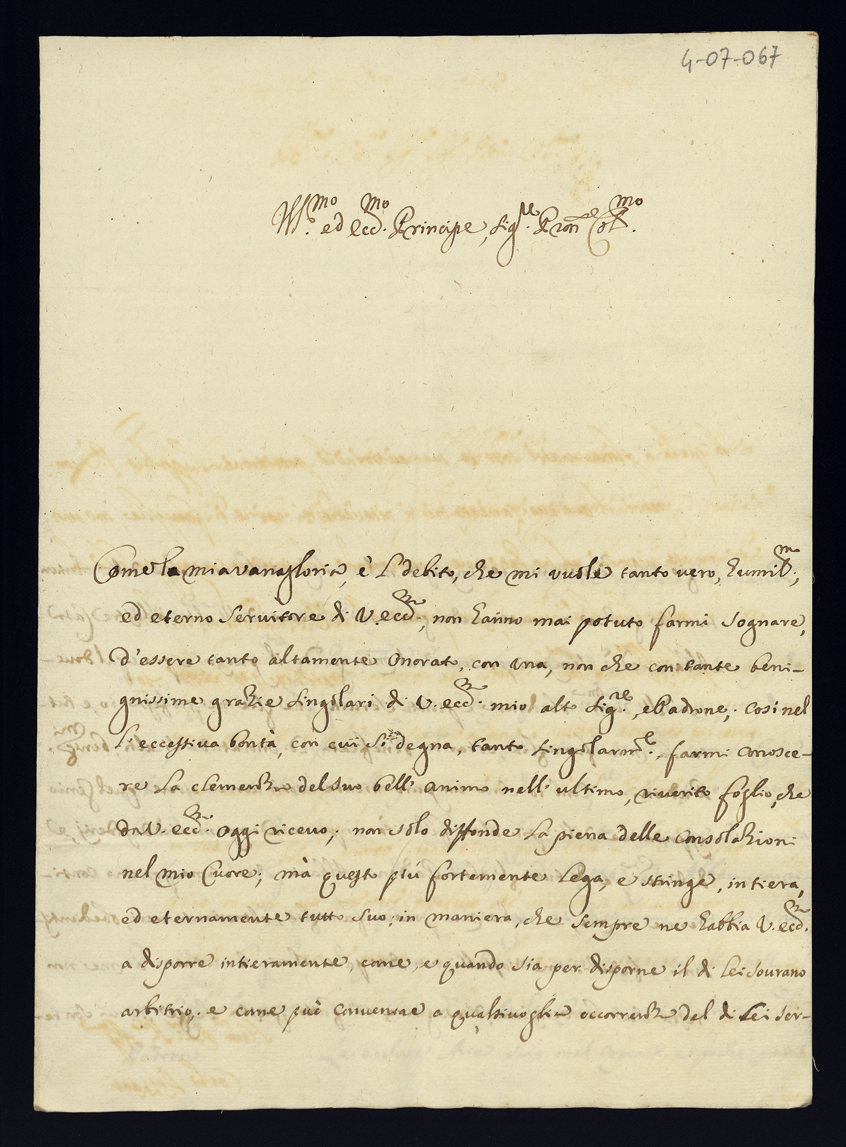 4-07-067
Ill.mo ed Ecc.mo Principe, Sig.re P.ron Col.mo
Come la mia vanagloria, è l debito, che mi vuole tanto vero, humil.mo,
ed eterno Servitore di V. Ecc.za, non hanno mai potuto farmi sognare,
d'essere tanto altamente Onorato, con una, non che con tante beni-
gnissime grazie singolari di V. Ecc.za mio alto Sig.re, e Padrone; così nel
l'eccessiva bontà, con cui si degna, tanto singolarm.te, farmi conosce-
re la clemenza del suo bell' animo nell' ultimo, riverito foglio, che
da V. Ecc.za oggi ricevo, non solo diffonde la piena delle consolazioni
nel mio Cuore; mà questo più fortemente lega, e stringe, intiera,
ed eternamente tutto suo; in maniera, che sempre ne habbia V. Ecc.za
a disporre intieramente, come, e quando sia per disporne il di Lei sovrano
arbitrio, e come può convenire a qualsivoglia occorrenza del di Lei ser-